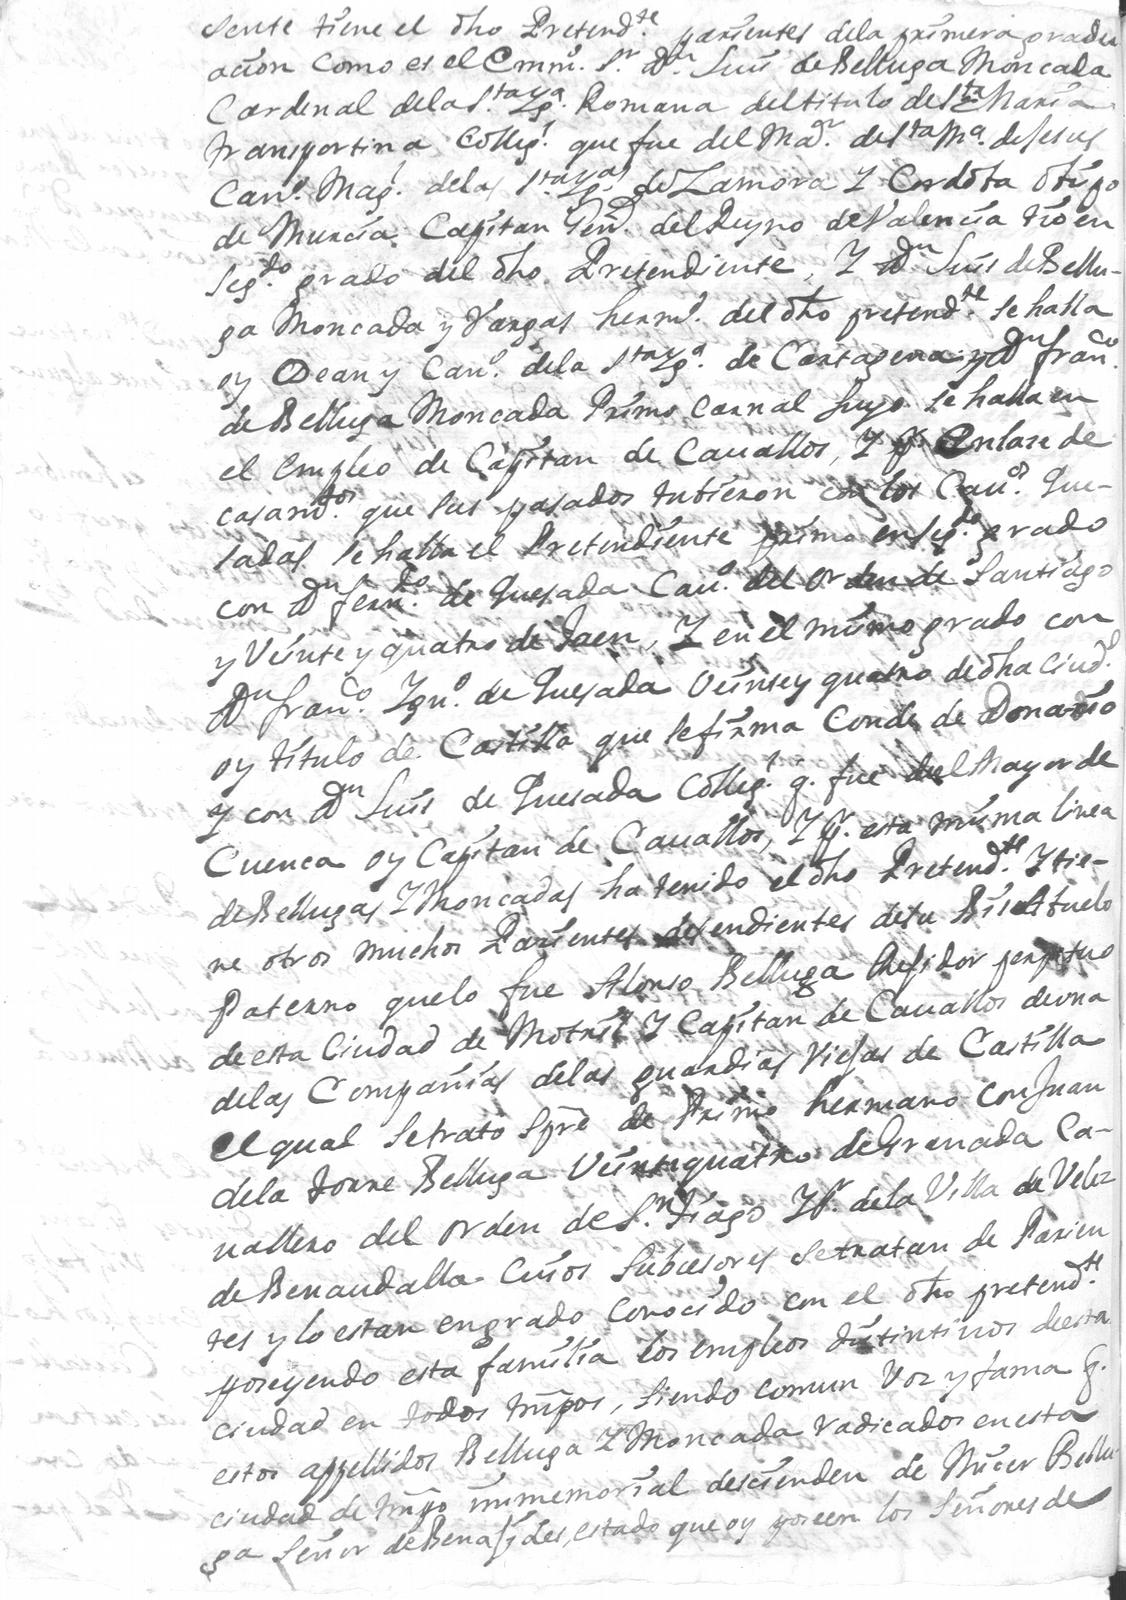 sente tiene el dho Pretend.te parientes dela primera gradu
acion como es el Emm.o S.r Dn Luis de Belluga Moncada
Cardenal dela S.ta Yg.a Romana del titulo de S.ta Maria
transportina Colleg.l que fue del Ma.or de S.ta M.a de Jesus
Can.o Mag.l delas S.tas Yg.as de Zamora Y Cordoba Obispo
de Murcia Capitan Gen.l del Reyno de Valencia tio en
seg.do grado del dho Pretendiente, Y Dn Luis de Bellu-
ga Moncada y Vargas herm.o del dho pretend.te se halla
oy Dean y Can.o dela S.ta Yg.a de Cartagena y Dn fran.co
de Belluga Moncada Primo carnal suyo se halla en
el empleo de Capitan de Cauallos, Y p.r Enlase de
casam.tos que sus pasados tubieron con los Cau.os Que-
sadas se halla el Pretendiente primo en seg.do grado
con Dn fern.do de Quesada Cau.o del orden de Santiago
y Veinte y quatro de Jaen, Y en el mismo grado con
Dn fran.co Ygn.o de Quesada Veinte y quatro de dha Ciud.d
oy titulo de Castilla que se firma Conde de Donadio
Y con Dn Luis de Quesada Colleg.l q. fue del Mayor de
Cuenca oy Capitan de Cauallos, Y p.r esta misma linea
de Bellugas Y Moncadas ha tenido el dho Pretend.te Y tie-
ne otros muchos Parientes desendientes de su Bisabuelo
Paterno que lo fue Alonso Belluga Regidor perpetuo
de esta Ciudad de Motril Y Capitan de Cauallos de vna
delas Compañias delas guardias Viejas de Castilla
el qual se trato Spre de Primo hermano con Juan
dela torre Belluga Veintiquatro de Granada Ca-
uallero del orden de S.n tiago Y S.r dela Villa de Velez
de Benaudalla Cuios Subcesores se tratan de Parien
tes y lo estan en grado conocido con el dho pretend.te
poseyendo esta familia los empleos distintiuos de esta
ciudad en todos tmpos, siendo comun Voz y fama q.
estos appellidos Belluga Y Moncada radicados en esta
ciudad de tmpo inmemorial descienden de Micer Bellu
ga Señor de estado que oy poseen los Señores de